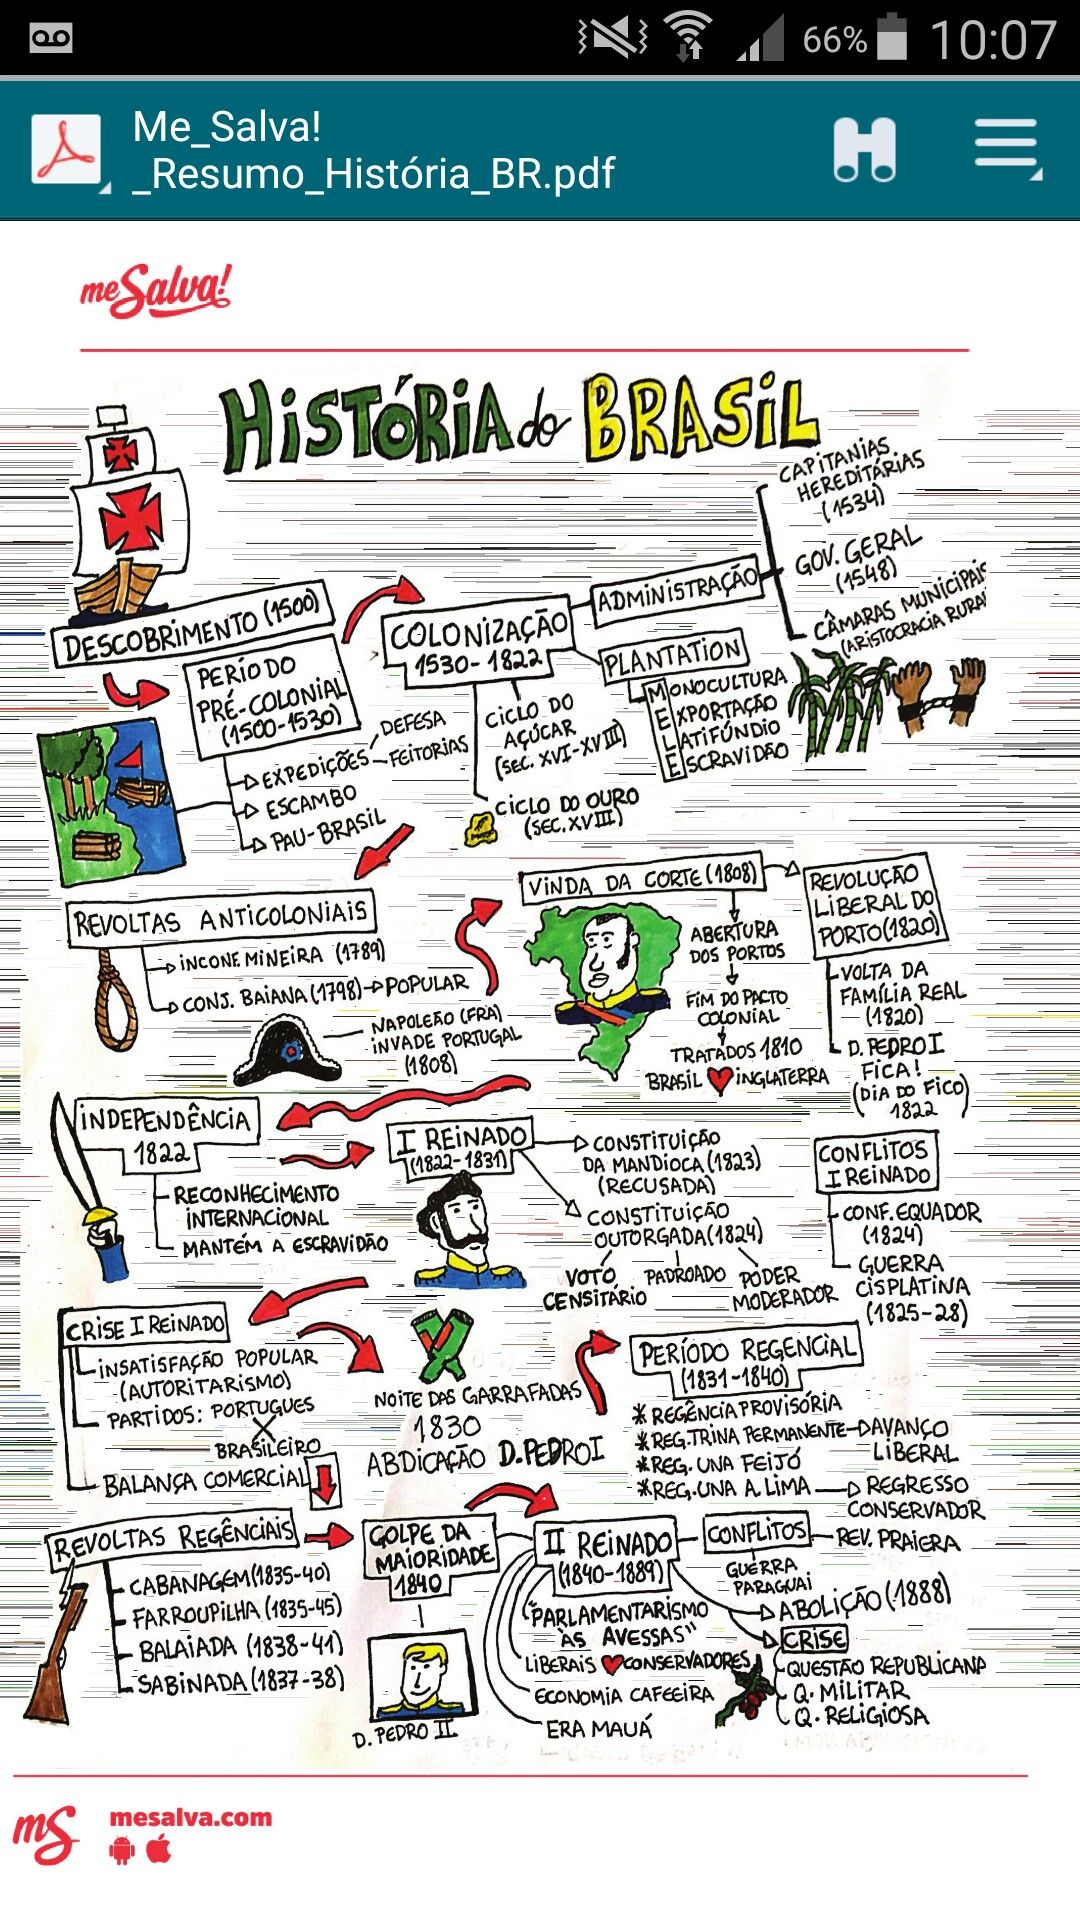 66% 10:07
Me_Salva!
_Resumo_História_BR.pdf
me Salva!
HISTÓRIA do BRASIL
CAPITANIAS
HEREDITÁRIAS
(1534)
GOV. GERAL
(1548)
CÂMARAS MUNICIPAIS
(ARISTOCRACIA RURA
ADMINISTRAÇÃO
DESCOBRIMENTO (1500)
COLONIZAÇÃO
1530-1822
PLANTATION
MONOCULTURA
EXPORTAÇÃO
LATIFÚNDIO
ESCRAVIDÃO
PERÍODO
PRÉ-COLONIAL
(1500-1530)
EXPEDIÇÕES
DEFESA
FEITORIAS
ESCAMBO
PAU-BRASIL
CICLO DO
AÇÚCAR
(SEC. XVI-XVIII)
CICLO DO OURO
(SEC. XVIII)
REVOLTAS ANTICOLONIAIS
INCONF. MINEIRA (1789)
CONJ. BAIANA (1798) POPULAR
NAPOLEÃO (FRA)
INVADE PORTUGAL
(1808)
VINDA DA CORTE (1808)
ABERTURA
DOS PORTOS
FIM DO PACTO
COLONIAL
TRATADOS 1810
BRASIL ♥ INGLATERRA
REVOLUÇÃO
LIBERAL DO
PORTO (1820)
VOLTA DA
FAMÍLIA REAL
(1820)
D. PEDRO I
FICA!
(DIA DO FICO)
1822
INDEPENDÊNCIA
1822
RECONHECIMENTO
INTERNACIONAL
MANTÉM A ESCRAVIDÃO
I REINADO
(1822-1831)
CONSTITUIÇÃO
DA MANDIOCA (1823)
(RECUSADA)
CONSTITUIÇÃO
OUTORGADA (1824)
VOTO
CENSITÁRIO
PADROADO
PODER
MODERADOR
CONFLITOS
I REINADO
CONF. EQUADOR
(1824)
GUERRA
CISPLATINA
(1825-28)
CRISE I REINADO
INSATISFAÇÃO POPULAR
(AUTORITARISMO)
PARTIDOS: PORTUGUES
X
BRASILEIRO
BALANÇA COMERCIAL
NOITE DAS GARRAFADAS
1830
ABDICAÇÃO D. PEDRO I
PERÍODO REGENCIAL
(1831-1840)
* REGÊNCIA PROVISÓRIA
* REG. TRINA PERMANENTE AVANÇO
LIBERAL
* REG. UNA FEIJÓ
* REG. UNA A. LIMA REGRESSO
CONSERVADOR
REVOLTAS REGÊNCIAIS
CABANAGEM (1835-40)
FARROUPILHA (1835-45)
BALAIADA (1838-41)
SABINADA (1837-38)
GOLPE DA
MAIORIDADE
1840
D. PEDRO II
II REINADO
(1840-1889)
CONFLITOS
REV. PRAIERA
GUERRA
PARAGUAI
ABOLIÇÃO (1888)
CRISE
QUESTÃO REPUBLICANA
Q. MILITAR
Q. RELIGIOSA
"PARLAMENTARISMO
ÀS AVESSAS"
LIBERAIS ♥ CONSERVADORES
ECONOMIA CAFEEIRA
ERA MAUÁ
mS mesalva.com